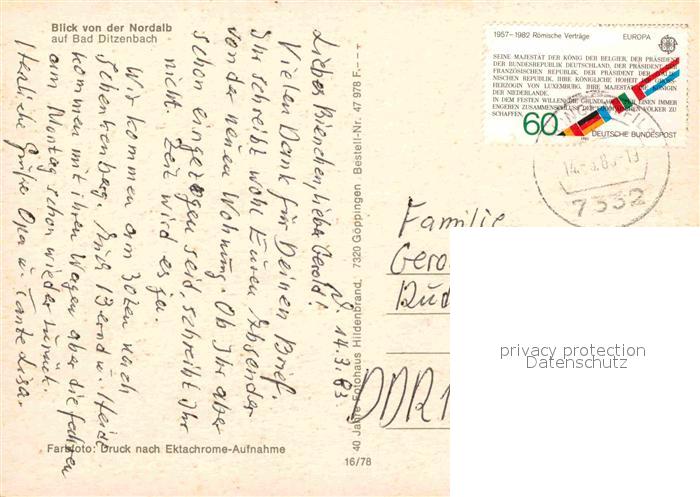 Blick von der Nordalb
auf Bad Ditzenbach
14.3.83.
Liebes Bienchen, lieber Gerold!
Vielen Dank für Deinen Brief.
Ihr schreibt wohl Euren Absender
von der neuen Wohnung. Ob Ihr aber
schon eingezogen seid, schreibt Ihr
nicht. Zeit wird es ja.
Wir kommen am 30ten nach
Schenkenberg. Erich Bernd u. Heide
kommen mit ihren Wagen aber die fahren
am Montag schon wieder zurück.
Herzliche Grüße Opa u. Tante Lisa.
Farbfoto: Druck nach Ektachrome-Aufnahme
40 Jahre Fotohaus Hildenbrand, 7320 Göppingen Bestell-Nr. 47 978 F
16/78
1957–1982 Römische Verträge EUROPA
SEINE MAJESTÄT DER KÖNIG DER BELGIER, DER PRÄSIDENT
DER BUNDESREPUBLIK DEUTSCHLAND, DER PRÄSIDENT DER
FRANZÖSISCHEN REPUBLIK, DER PRÄSIDENT DER ITALIE-
NISCHEN REPUBLIK, IHRE KÖNIGLICHE HOHEIT DIE GROSS-
HERZOGIN VON LUXEMBURG, IHRE MAJESTÄT DIE KÖNIGIN
DER NIEDERLANDE,
IN DEM FESTEN WILLEN, DIE GRUNDLAGEN EINEN IMMER
ENGEREN ZUSAMMENSCHLUSS DER EUROPÄISCHEN VÖLKER ZU
SCHAFFEN
60 DEUTSCHE BUNDESPOST
7332
Familie
Gero
Rud
DDR 1
privacy protection
Datenschutz